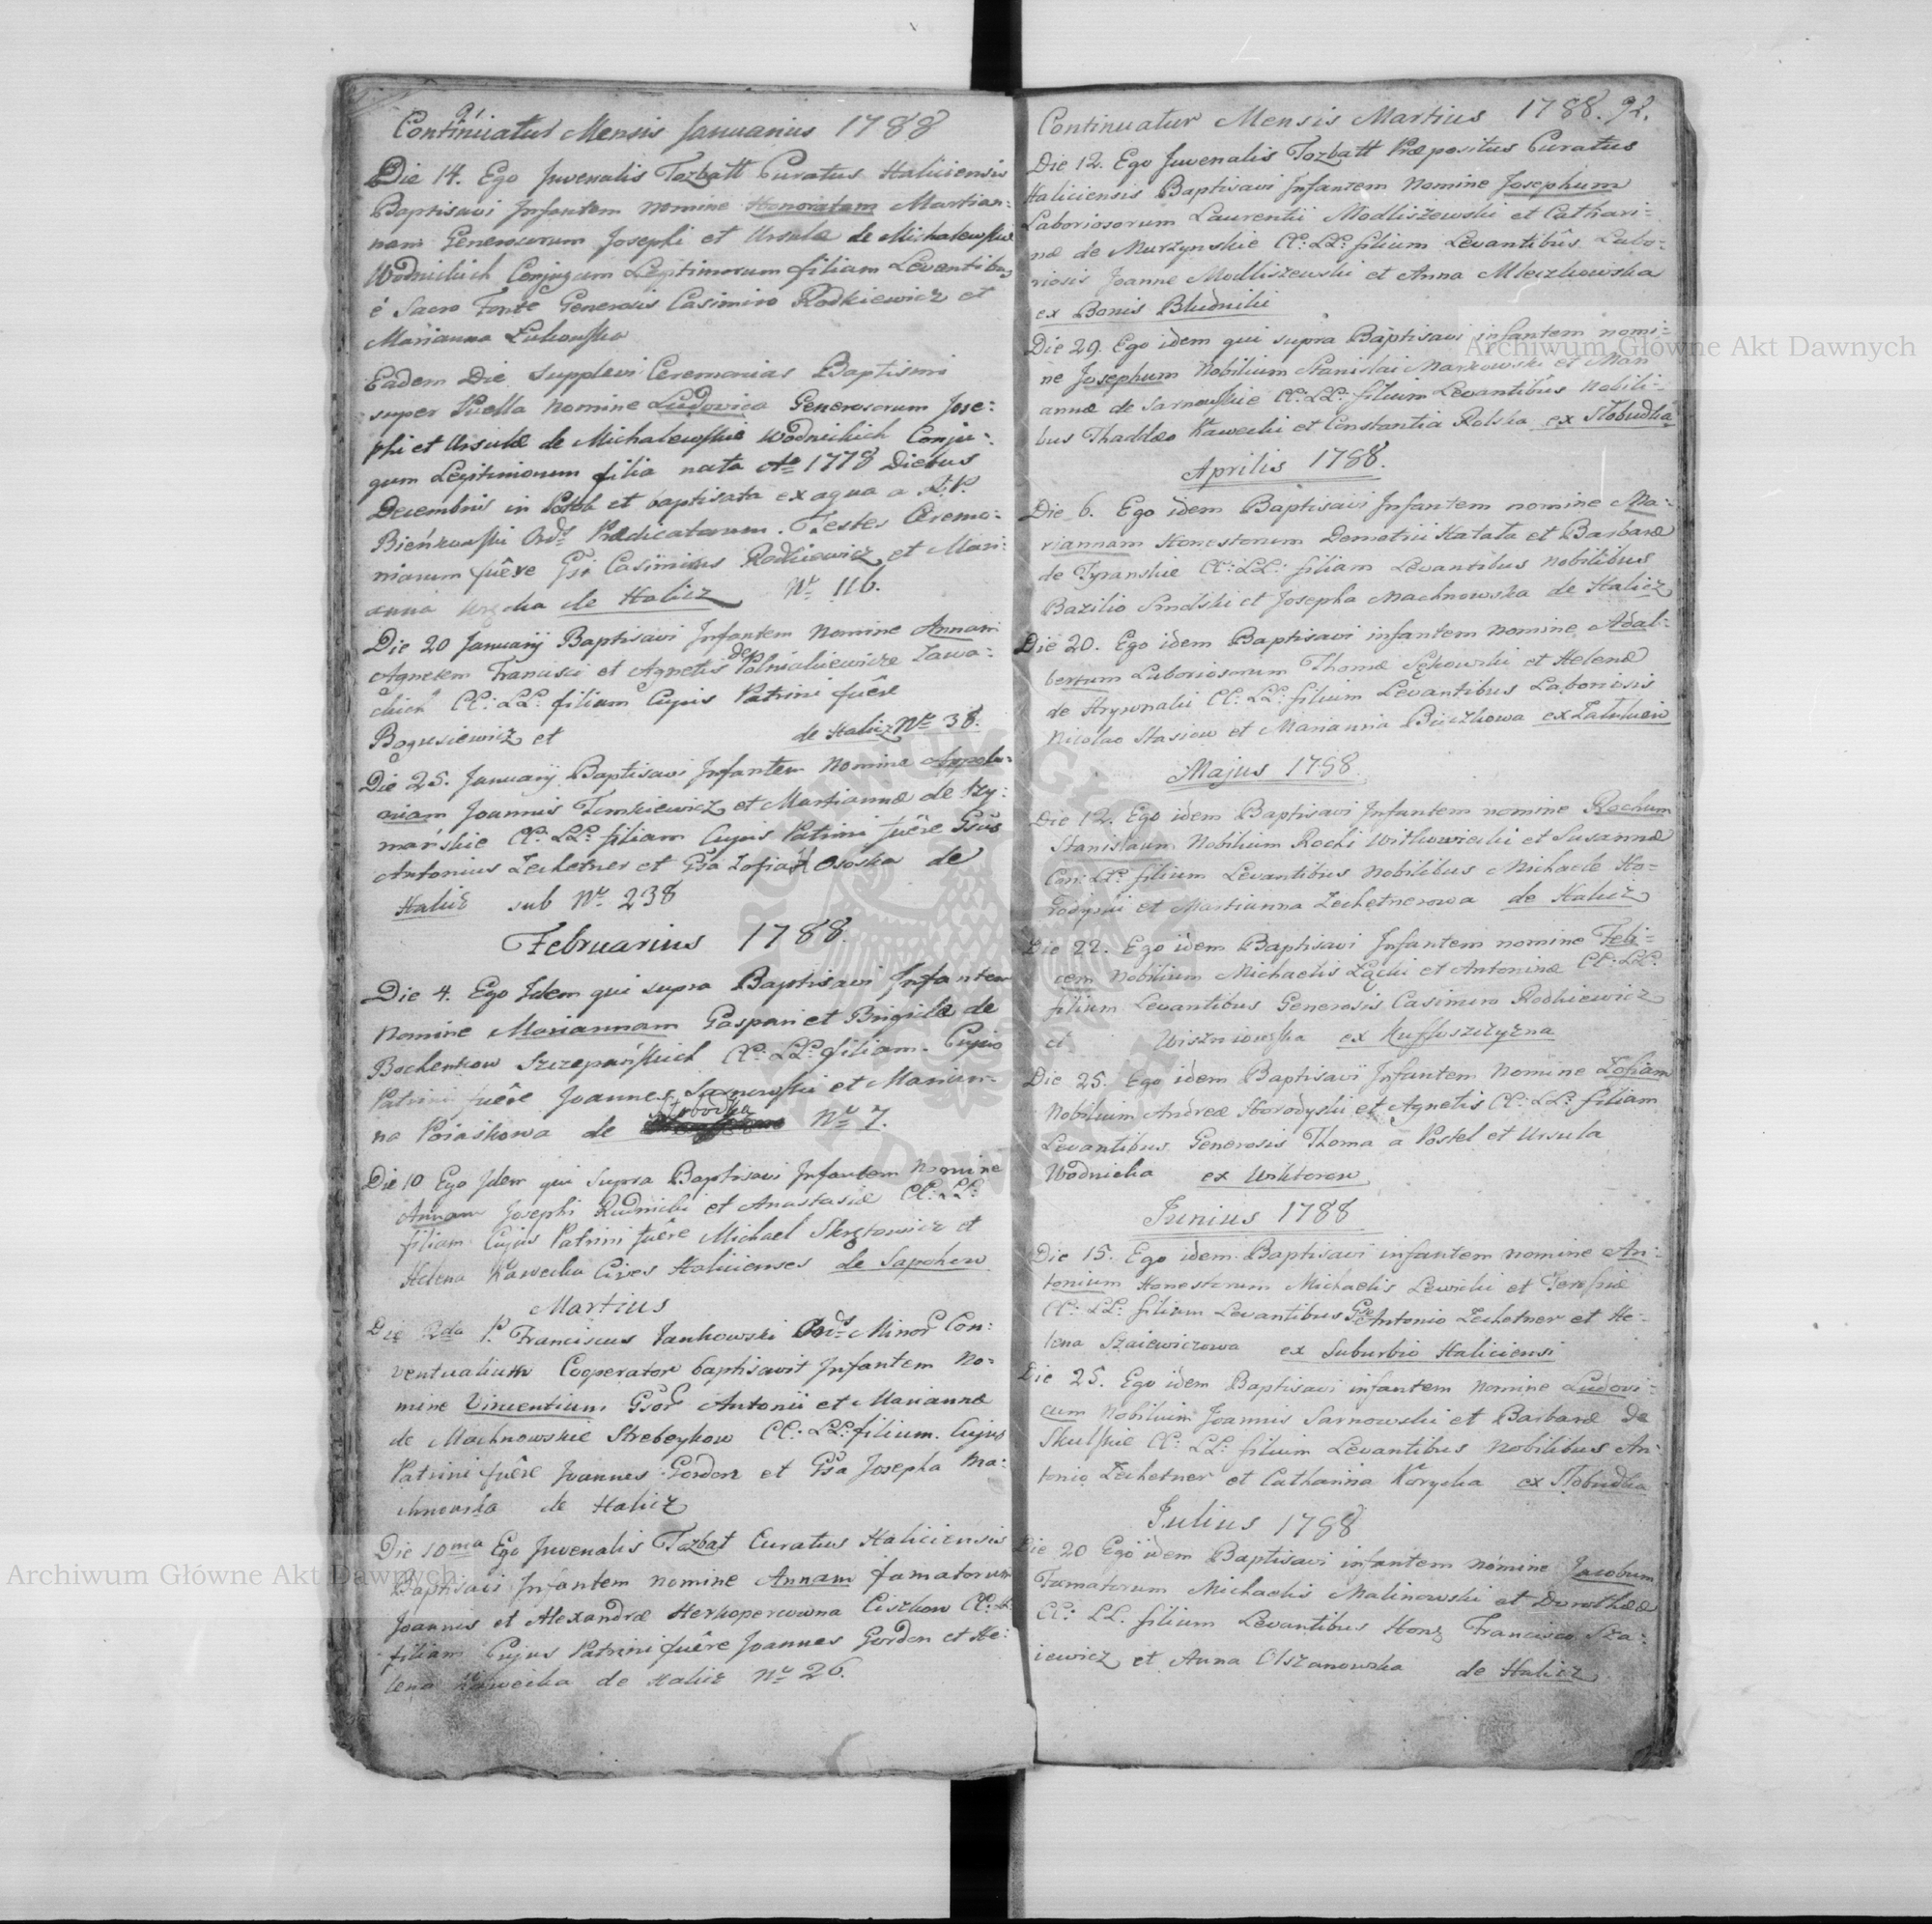 91
Continuatur Mensis Januarius 1788
Die 14. Ego Juvenalis Tozbatt Curatus Haliciensis
Baptisavi Infantem Nomine Honoratam Martian:
nam Generosorum Josephi et Ursulæ de Michalewskie
Wodnickich Conjugum Legitimorum filiam Levantibus
é Sacro Fonte Generosis Casimiro Rodkiewicz et
Marianna Łukowska
Eadem Die Supplevi Ceremonias Baptismi
super Puella Nomine Ludovica Generosorum Jose:
phi et Ursulæ de Michalewskie Wodnickich Conju:
gum Legitimorum filia nata Ao 1778 Diebus
Decembris in et baptisata ex aqua a
Bieńkowski Ords Prædicatorum. Testes Ceremo:
niarum fuêre Gsi Casimirus Rodkiewicz et Mari:
anna de Halicz Nr 116.
Die 20 Januarij Baptisavi Infantem Nomine Annam
Agnetem Francisci et Agnetis de Polniakiewicze Zawa:
dkich CC: LL: filiam Cujus Patrini fuêre
Bogusiewicz et de Halicz Nr 38.
Die 25. Januarij Baptisavi Infantem Nomine Appolo:
niam Joannis Tomkiewicz et Martiannæ de Szy:
mańskie CC: LL: filiam Cujus Patrini fuêre Gsus
Antonius Zechetner et Gsa Zofia Ososka de
Halicz sub Nr 238
Februarius 1788.
Die 4. Ego Idem qui supra Baptisavi Infantem
Nomine Mariannam Gaspari et Brigidæ de
Bochenkow Szczepańskich CC: LL: filiam. Cujus
Patrini fuêre Joannes Sarnowski et Marian-
na Poiaskowa de Słobodka Nr 7.
Die 10 Ego Idem qui supra Baptisavi Infantem Nomine
Annam Josephi Rudnicki et Anastasiæ CC: LL:
filiam Cujus Patrini fuêre Michael Skrętowicz et
Helena Kawecka Cives Halicienses de Sapohow
Martius
Die 2da P. Franciscus Jankowski Ords Minor Con:
ventualium Cooperator baptisavit Infantem No:
mine Vincentium Gsor Antonii et Mariannæ
de Machnowskie Strebeykow CC: LL: filium. Cujus
Patrini fuêre Joannes Gordon et Gsa Josepha Ma:
chnowska de Halicz
Die 10ma Ego Juvenalis Tozbat Curatus Haliciensis
Baptisavi Infantem nomine Annam famatorum
Joannis et Alexandræ Herkopercowna Ciszkow CC: LL:
filiam Cujus Patrini fuêre Joannes Gordon et He:
lena Kawecka de Halicz Nr 26.
Continuatur Mensis Martius 1788. 92.
Die 12. Ego Juvenalis Tozbatt Præpositus Curatus
Haliciensis Baptisavi Infantem Nomine Josephum
Laboriosorum Laurentii Modliszewski et Cathari:
næ de Murzynskie CC: LL: filium Levantibus Labo:
riosis Joanne Modliszewski et Anna Mleczkowska
ex Bonis Bludniki
Die 29. Ego idem qui supra Baptisavi infantem nomi:
ne Josephum Nobilium Stanislai Markowski et Mari
annæ de Sarnowskie CC: LL: filium Levantibus Nobili:
bus Thaddeo Kawecki et Constantia Rolska ex Słobudka
Aprilis 1788.
Die 6. Ego idem Baptisavi Infantem nomine Ma:
riannam Honestorum Demetrii Hatala et Barbaræ
de Tyranskie CC: LL: filiam Levantibus Nobilibus
Bazilio Smolski et Josepha Machnowska de Halicz
Die 20. Ego idem Baptisavi infantem nomine Adal:
bertum Laboriosorum Thomæ Sękowski et Helenæ
de Hrywnaki CC: LL: filium Levantibus Laboriosis
Nicolao Stasiow et Marianna Byczkowa ex Załukiew
Majus 1788.
Die 12. Ego idem Baptisavi Infantem nomine Rochum
Stanislaum Nobilium Rochi Witkowiecki et Susannæ
Con: LL: filium Levantibus Nobilibus Michaele Ho-
rodyski et Martianna Zechetnerowa de Halicz
Die 22. Ego idem Baptisavi Infantem nomine Feli-
cem Nobilium Michaelis Łącki et Antoninæ CC: LL:
filium Levantibus Generosis Casimiro Rodkiewicz
et Wiszniowska ex Kuffloszczyzna
Die 25. Ego idem Baptisavi Infantem Nomine Zofiam
Nobilium Andreæ Horodyski et Agnetis CC: LL: filiam
Levantibus Generosis Thoma a Postel et Ursula
Wodnicka ex Wiktorow
Junius 1788
Die 15. Ego idem Baptisavi infantem nomine An:
tonium Honestorum Michaelis Lewicki et Teresiæ
CC: LL: filium Levantibus Gse Antonio Zechetner et He-
lena Szaiewiczowa ex Suburbio Haliciensi
Die 25. Ego idem Baptisavi infantem Nomine Ludovi:
cum Nobilium Joannis Sarnowski et Barbaræ de
Skulskie CC: LL: filium Levantibus Nobilibus An:
tonio Zechetner et Catharina Koryska ex Słobudka
Julius 1788
Die 20 Ego idem Baptisavi infantem nomine Jacobum
Famatorum Michaelis Malinowski et Dorotheæ
CC: LL. filium Levantibus Hons Francisco Sza:
iewicz et Anna Olszanowska de Halicz
Archiwum Główne Akt Dawnych
Archiwum Główne Akt Dawnych